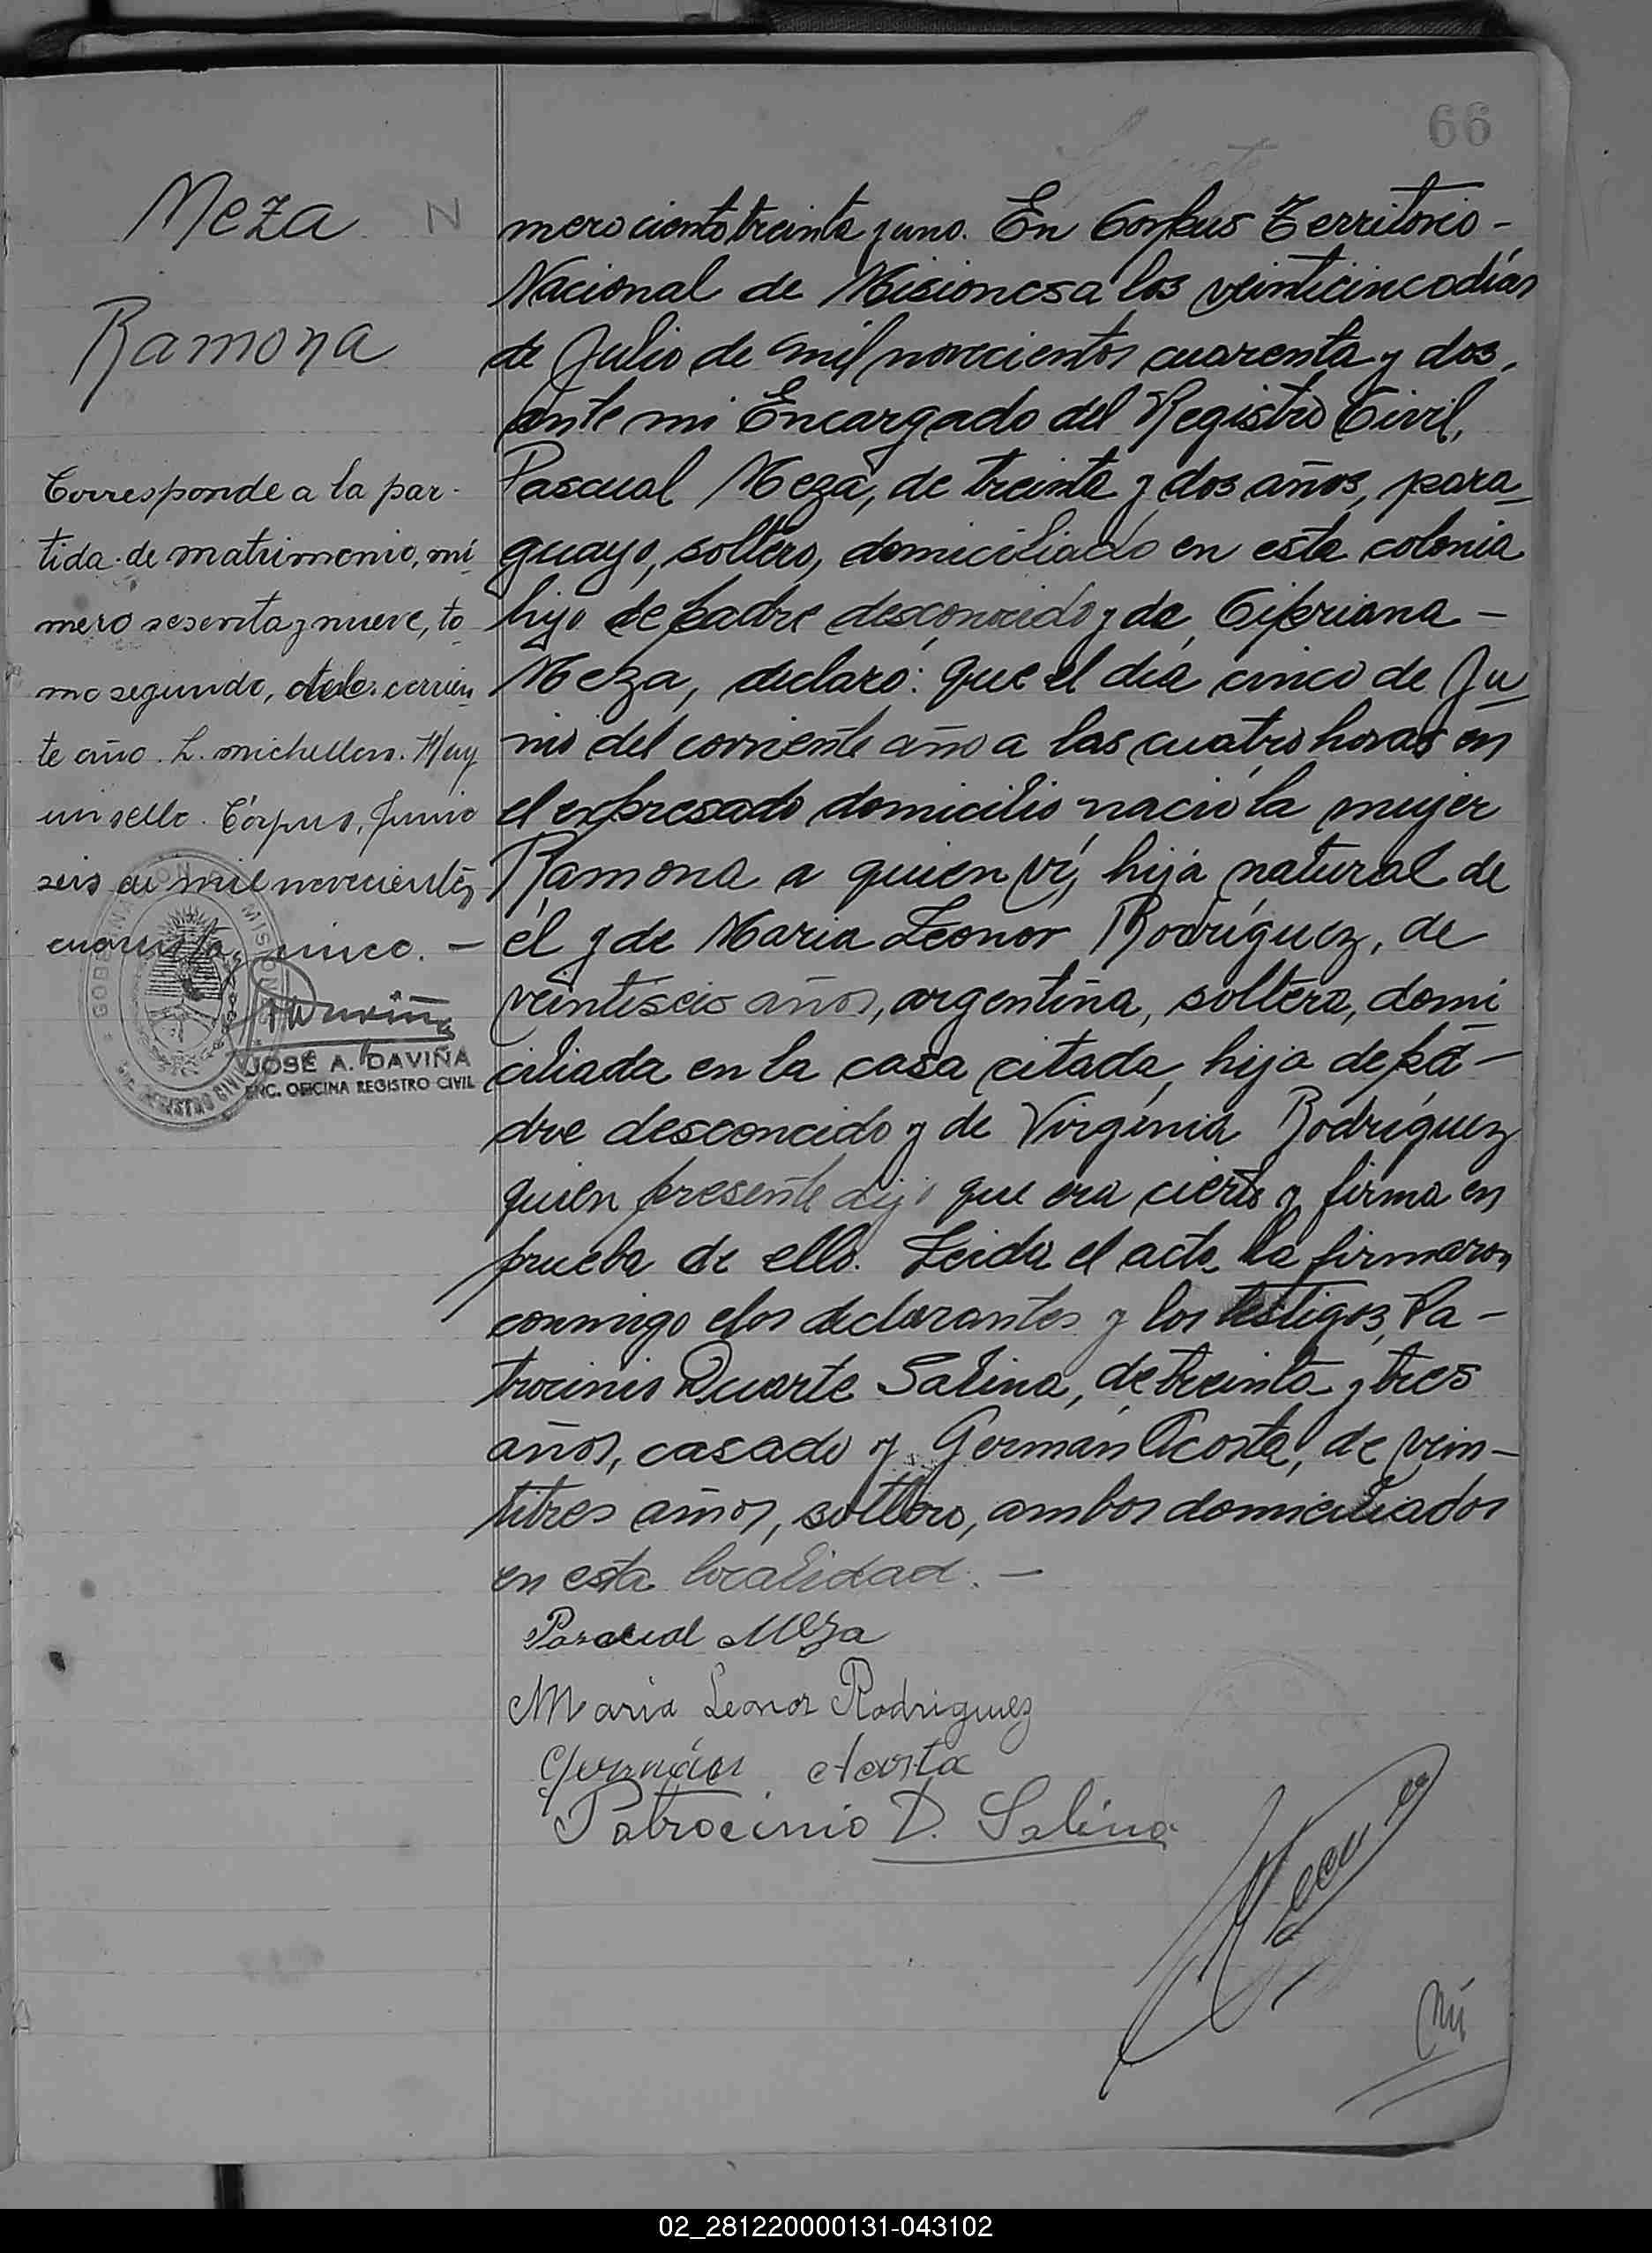 66
Meza N
Ramona
Corresponde a la par-
tida de matrimonio, nú
mero sesenta y nueve, to
mo segundo, del corrien
te año. L. Michellon. Hay
un sello. Córpus, Junio
seis de mil novecientos
cuarenta y cinco. —
GOBERNACION MISIONES
REGISTRO CIVIL
JOSÉ A. DAVIÑA
ENC. OFICINA REGISTRO CIVIL
mero ciento treinta y uno. En Corpus Territorio -
Nacional de Misiones a los veinticinco días
de Julio de mil novecientos cuarenta y dos,
ante mi Encargado del Registro Civil,
Pascual Meza, de treinta y dos años, para
guayo, soltero, domiciliado en esta colonia
hijo de padre desconocido y de Cipriana -
Meza, declaró: que el día cinco de Ju
nio del corriente año a las cuatro horas en
el expresado domicilio nació la mujer
Ramona a quien ví, hija natural de
él y de Maria Leonor Rodríguez, de
veintiseis años, argentina, soltera, domi
ciliada en la casa citada, hija de pa -
dre desconcido y de Virginia Rodríguez
quien presente dijo que era cierto y firma en
prueba de ello. Leida el acta la firmaron
conmigo los declarantes y los testigos, Pa -
trocinio Duarte Salina, de treinta y tres
años, casado y Germán Acosta, de vein -
titres años, soltero, ambos domiciliados
en esta localidad. —
Pascual Meza
Maria Leonor Rodriguez
Germán Acosta
Patrocinio D. Salina
Nú
02_281220000131-043102